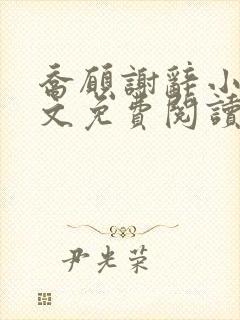 喬願謝辭小
文免費閱讀
尹光荣